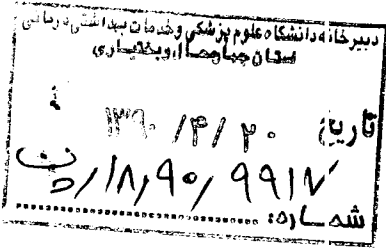 دبیرخانه دانشگاه علوم پزشکی و خدمات بهداشتی درمانی
استان چهارمحال و بختیاری
تاریخ ۱۳۹۰/۴/۲۰
۱۸٫۹۰/۹۹۱۷/
شماره: